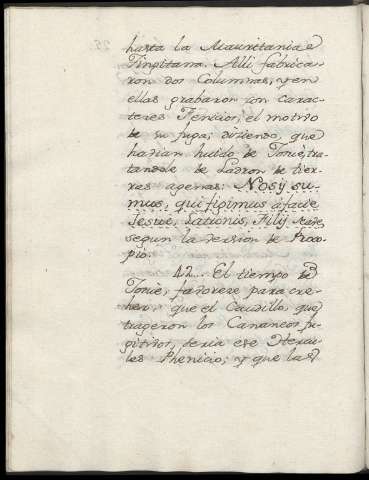 hasta la Mauretania
Tingitana. Alli fabrica-
ron dos Columnas, y en
ellas grabaron con carac-
teres Fenicios, el motivo
de su fuga; diziendo, que
havian huido de Josuè, tra-
tandole de Ladron de tier-
ras agenas. Nosij su-
mus, qui fugimus à facie
Jesue, Latronis, filij Nave
segun la version de Proco-
pio.
42... El tiempo de
Josuè, favorece para cre-
her, que el Caudillo, que
trageron los Cananeos fu-
gitivos, seria ese Hercu-
les Phenicio; y que las